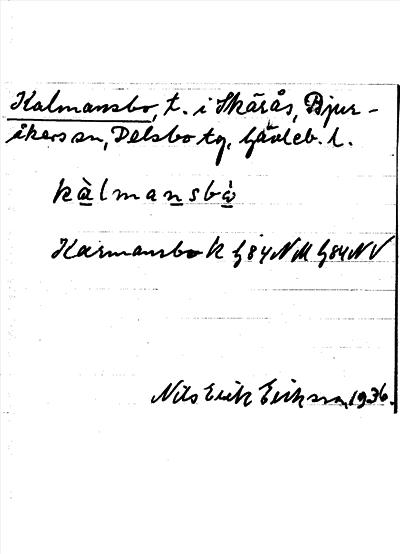 Kalmansbo, t. i Skärås, Bjur-
åkers sn, Delsbo tg, Gävleb. l.
kàlmansbò
Karmansbo k G84NM G84NV
Nils Erik Erikson, 1936.